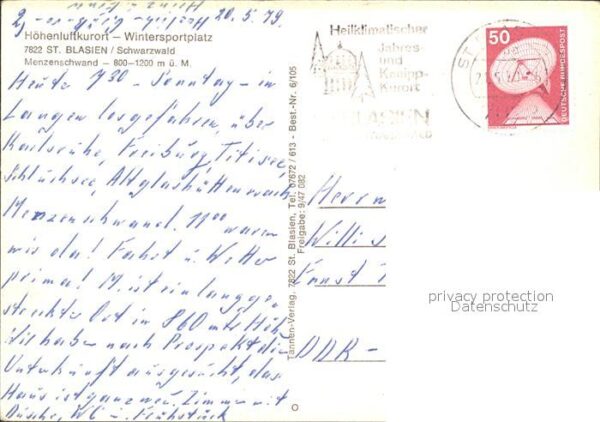 20.5.79
Höhenluftkurort – Wintersportplatz
7822 ST. BLASIEN / Schwarzwald
Menzenschwand – 800–1200 m ü. M.
Heute 7³⁰ - Sonntag - in
Langen losgefahren, über
Karlsruhe, Freiburg, Titisee,
Schluchsee, Altglashütten nach
Menzenschwand. 11⁰⁰ waren
wir da! Fahrt u. Wetter
prima! M. ist ein langge-
streckter Ort in 860 mtr Höhe
Wir haben nach Prospekt die
Unterkunft ausgesucht, das
Haus ist ganz neu. Zimmer mit
Dusche, WC u. Frühstück
Tannen-Verlag, 7822 St. Blasien, Tel. 07672 / 613 - Best.-Nr. 6/105
Freigabe: 9/47 082
Heilklimatischer
Jahres-
und
Kneipp-
Kurort
BLASIEN
ST
50
DEUTSCHE BUNDESPOST
Herrn
Willi
Ernst
DDR -
privacy protection
Datenschutz